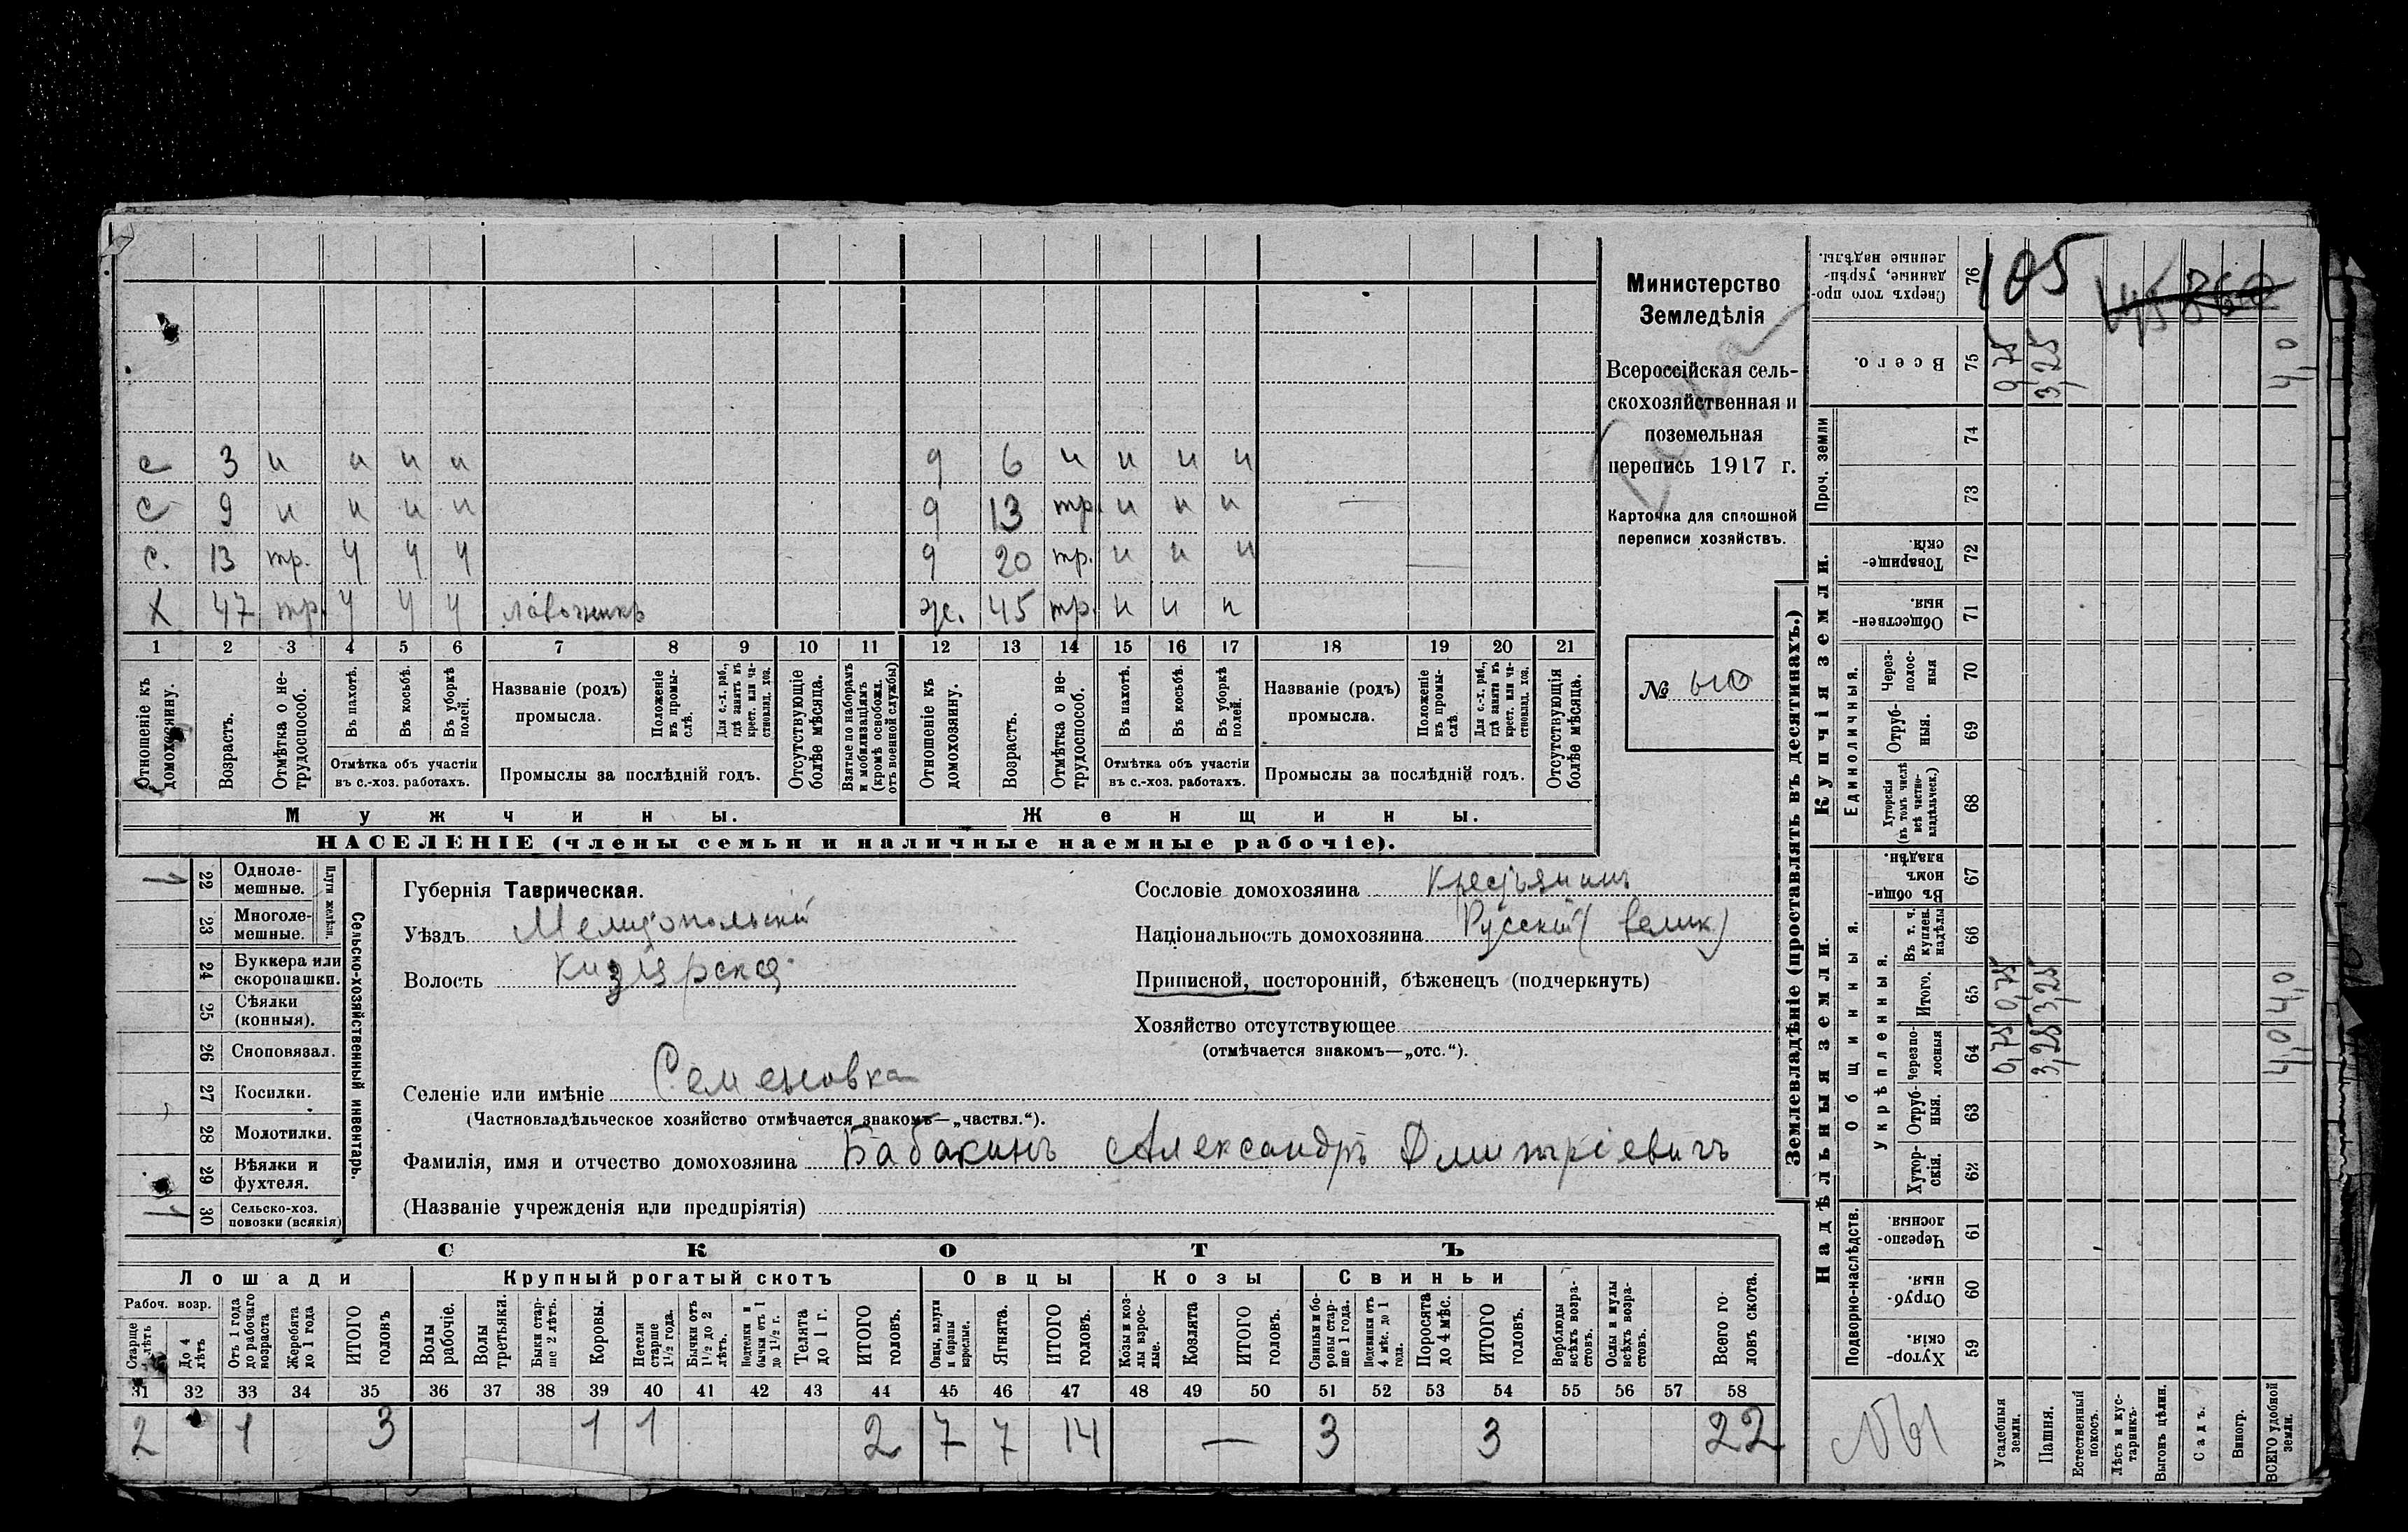 с 3 н н н н 9 6 н н н н
с 9 н н н н 9 13 тр. н н н
с. 13 тр. ч ч ч 9 20 тр. н н н
Х 47 тр. ч ч ч лавочникъ ж. 45 тр. н н н
1 2 3 4 5 6 7 8 9 10 11 12 13 14 15 16 17 18 19 20 21
Отношеніе къ домохозяину.
Возрастъ.
Отмѣтка о нетрудоспособ.
Въ пахотѣ.
Въ косьбѣ.
Въ уборкѣ полей.
Отмѣтка объ участіи
въ с.-хоз. работахъ.
Названіе (родъ)
промысла.
Положеніе въ промыслѣ.
Для с.-х. раб., гдѣ занятъ въ крест. или частновлад. хоз.
Промыслы за послѣдній годъ.
Отсутствующіе болѣе мѣсяца.
Взятые по наборамъ и мобилизаціямъ (кромѣ освобожд. отъ военной службы)
Отношеніе къ домохозяину.
Возрастъ.
Отмѣтка о нетрудоспособ.
Въ пахотѣ.
Въ косьбѣ.
Въ уборкѣ полей.
Отмѣтка объ участіи
въ с.-хоз. работахъ.
Названіе (родъ)
промысла.
Положеніе въ промыслѣ.
Для с.-х. раб., гдѣ занята въ крест. или частновлад. хоз.
Промыслы за послѣдній годъ.
Отсутствующія болѣе мѣсяца.
Мужчины. Женщины.
НАСЕЛЕНІЕ (члены семьи и наличные наемные рабочіе).
Министерство
Земледѣлія
Всероссійская сель-
скохозяйственная и
поземельная
перепись 1917 г.
Карточка для сплошной
переписи хозяйствъ.
№
1 22 Одноле-
мешные.
23 Многоле-
мешные.
Плуги желѣзн.
24 Буккера или
скоропашки.
25 Сѣялки
(конныя).
26 Сноповязал.
27 Косилки.
28 Молотилки.
29 Вѣялки и
фухтеля.
1 30 Сельско-хоз.
повозки (всякія)
Сельско-хозяйственный инвентарь.
Губернія Таврическая.
Уѣздъ Мелитопольскій
Волость Кизіярская
Селеніе или имѣніе Семеновка
(Частновладѣльческое хозяйство отмѣчается знакомъ—„частвл.“).
Фамилія, имя и отчество домохозяина Бабакинъ Александръ Дмитріевичъ
(Названіе учрежденія или предпріятія)
Сословіе домохозяина Крестьянинъ
Національность домохозяина Русскій (велик)
Приписной, посторонній, бѣженецъ (подчеркнуть)
Хозяйство отсутствующее
(отмѣчается знакомъ—„отс.“).
СКОТЪ
Лошади Крупный рогатый скотъ Овцы Козы Свиньи
Рабоч. возр.
Старше 4 лѣтъ
До 4 лѣтъ
Отъ 1 года до рабочаго возраста
Жеребята до 1 года
ИТОГО головъ
Волы рабочіе.
Волы третьяки.
Быки старше 2 лѣтъ.
Коровы.
Нетели старше 1½ года.
Бычки отъ 1½ до 2 лѣтъ.
Подтелки и бычки отъ 1 до 1½ г.
Телята до 1 г.
ИТОГО головъ.
Овцы, валухи и бараны взрослые.
Ягнята.
ИТОГО головъ.
Козы и козлы взрослые.
Козлята
ИТОГО головъ.
Свиньи и боровы старше 1 года.
Подсвинки отъ 4 мѣс. до 1 года.
Поросята до 4 мѣс.
ИТОГО головъ.
Верблюды всѣхъ возрастовъ.
Ослы и мулы всѣхъ возрастовъ.
Всего головъ скота.
31 32 33 34 35 36 37 38 39 40 41 42 43 44 45 46 47 48 49 50 51 52 53 54 55 56 57 58
2 1 3 1 1 2 7 7 14 — 3 3 22
Землевладѣніе (проставлять въ десятинахъ.)
Надѣльныя земли. Купчія земли. Проч. земли
Подворно-наслѣдств.
Общинныя.
Укрѣпленныя.
Единоличныя.
59 Хуторскія.
60 Отрубныя.
61 Черезполосныя.
62 Хуторскія.
63 Отрубныя.
64 Черезполосныя 0,75 3,25 4,0
65 Итого. 0,75 3,25 4,0
66 Въ т. ч. куплен. надѣлы
67 Въ общинномъ владѣн.
68 Хуторскія (въ томъ числѣ всѣ частновладѣльческ.)
69 Отрубныя.
70 Черезполосныя
71 Общественныя.
72 Товарищескія.
73
74
75 Всего. 0,75 3,25 4,0
76 Сверхъ того проданные, укрѣпленные надѣлы.
105
Усадебныя земли.
Пашня.
Естественный покосъ.
Лѣсъ и кустарникъ.
Выгонъ цѣлин.
Садъ.
Виногр.
ВСЕГО удобной земли.